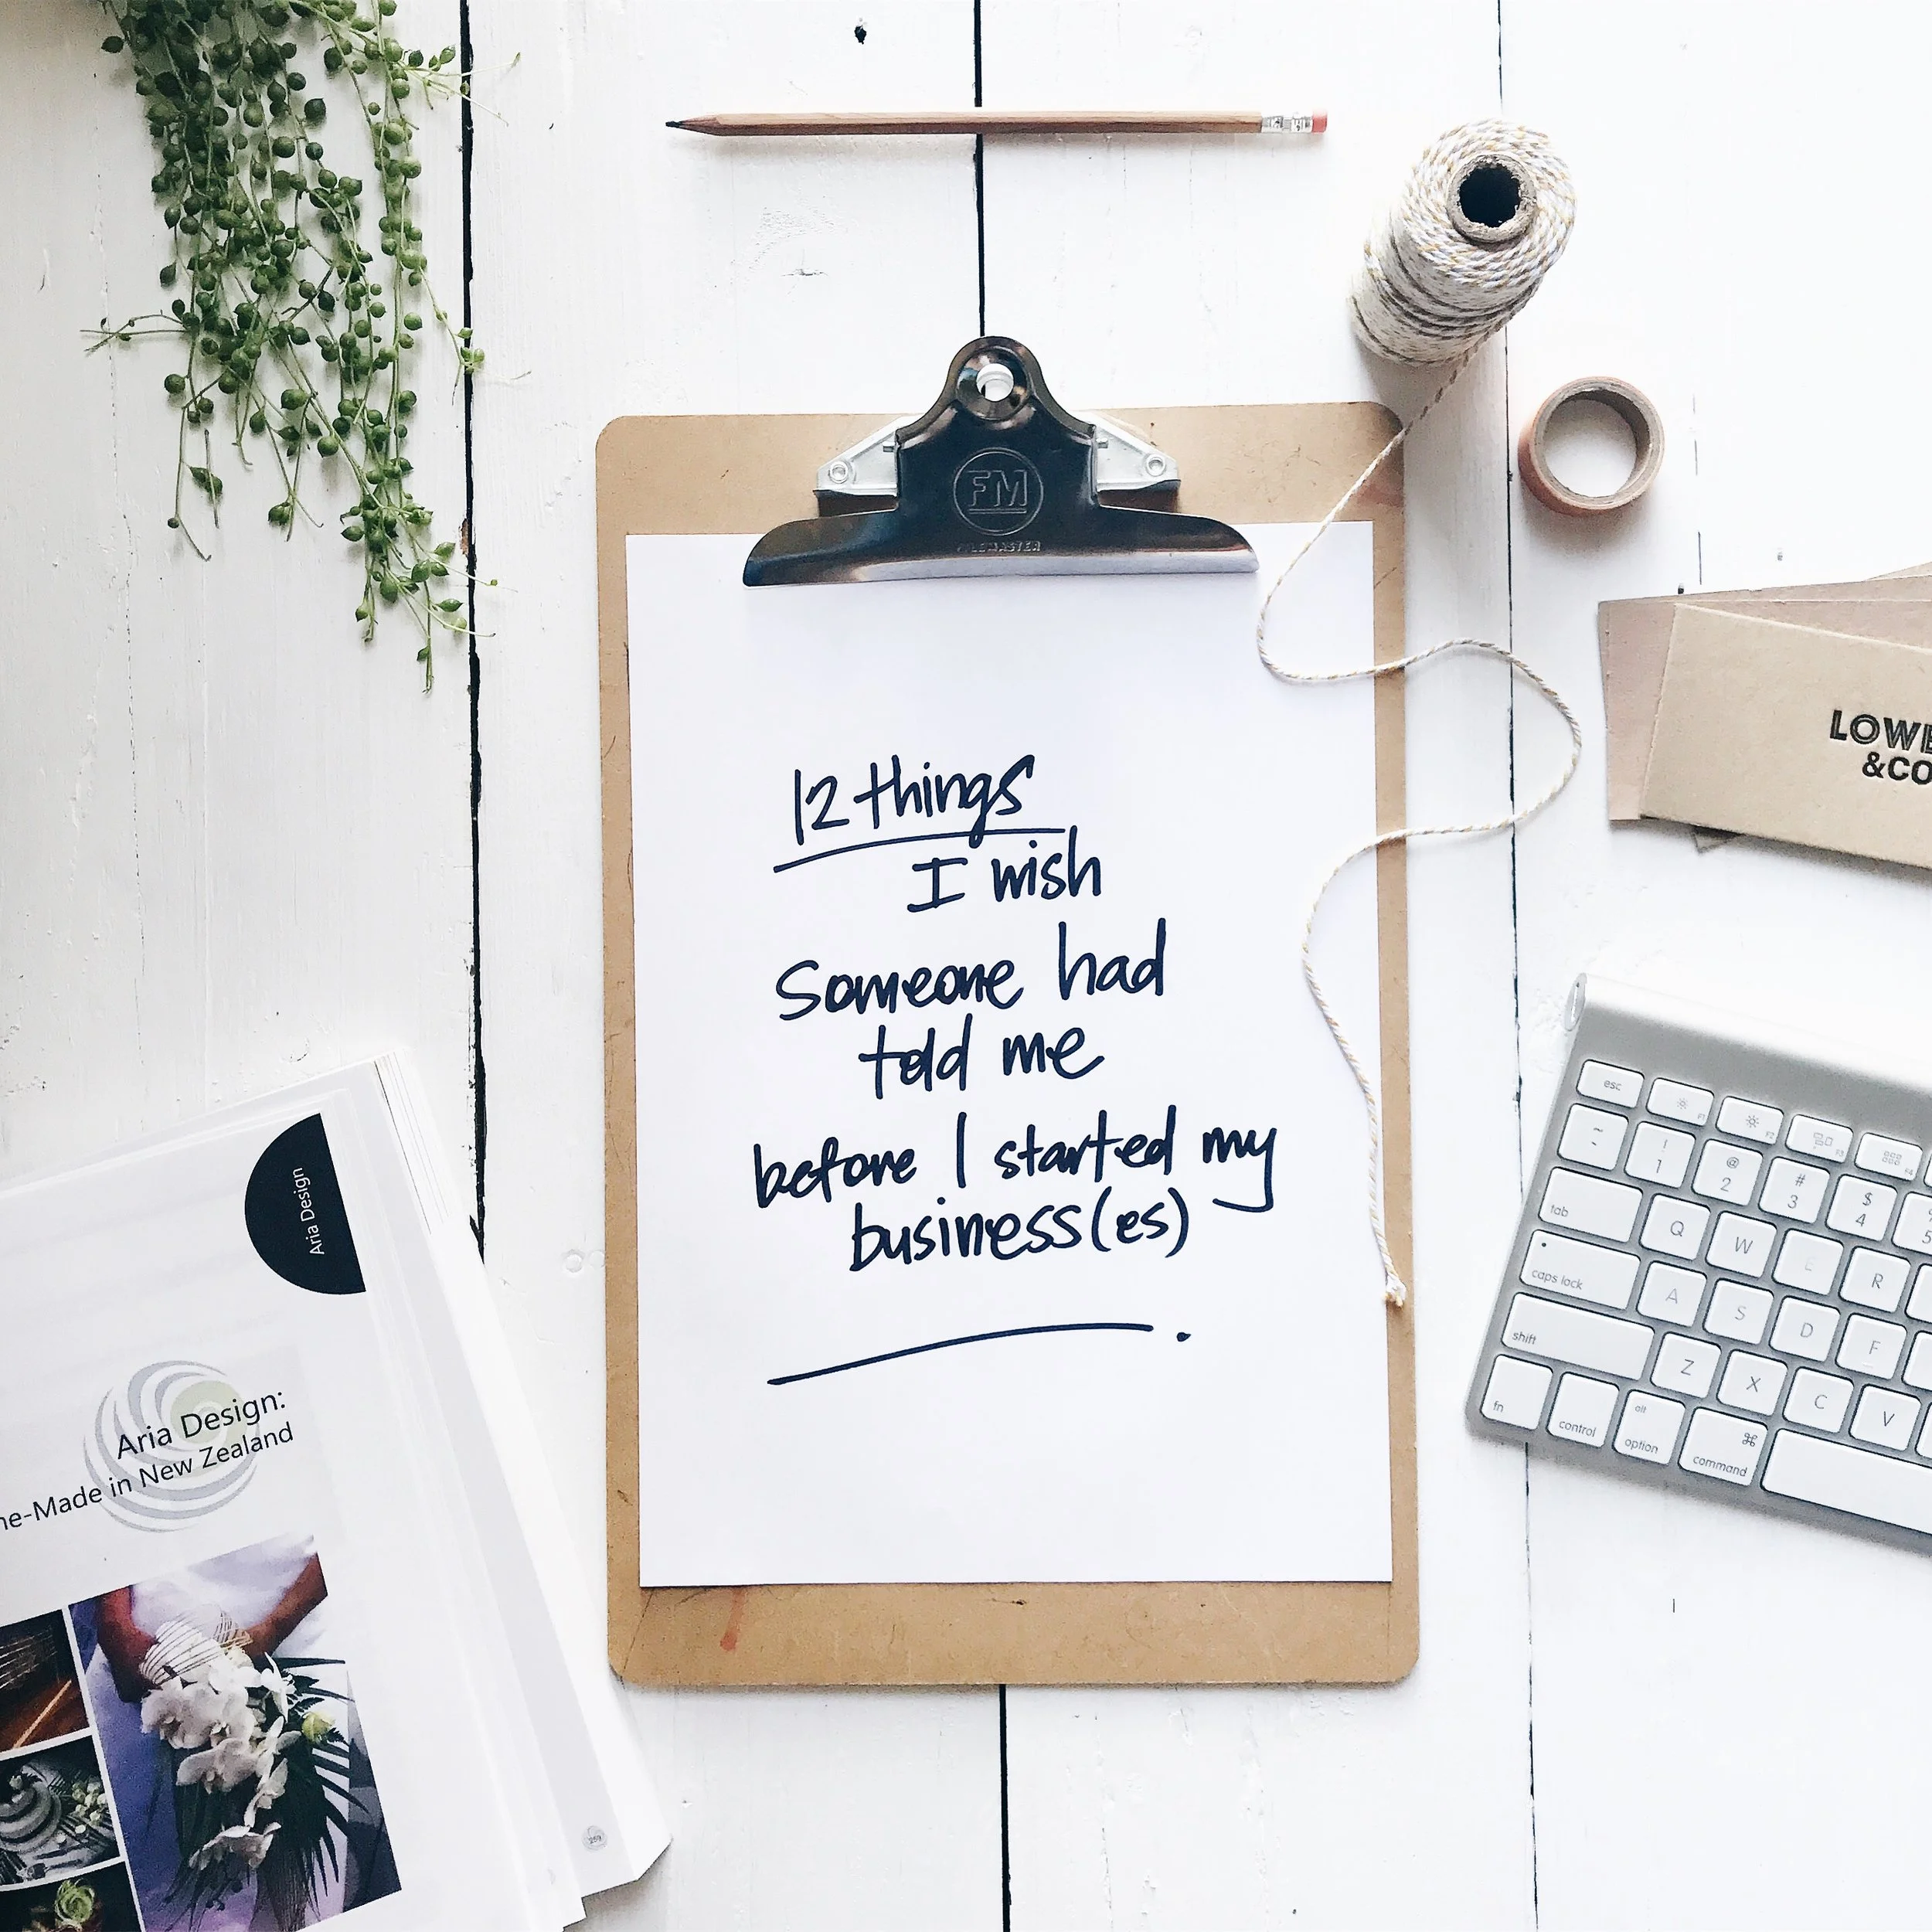 FM
FILEMASTER
12 things
I wish
Someone had
told me
before I started my
business(es)
LOWE
&CO
Aria Design
Aria Design:
ne-Made in New Zealand
259
esc
F1
F2
F3
F4
~
! 1
@ 2
# 3
$ 4
5
tab
Q
W
E
R
caps lock
A
S
D
F
shift
Z
X
C
V
fn
control
alt
option
⌘
command